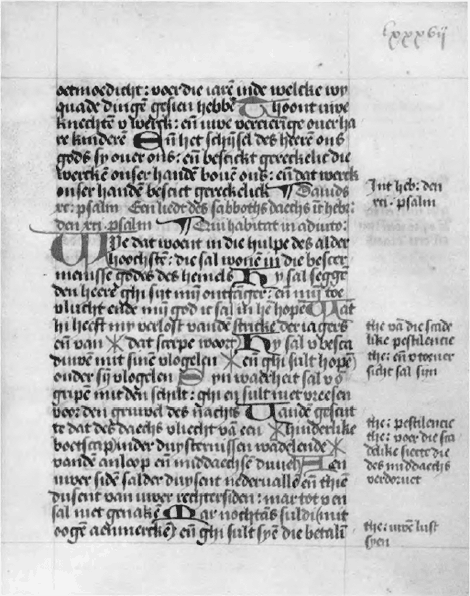 lxxxvij
oetmoedicht : voer die iarē inde welcke wy
quade dingē gesien hebbē Thoont uwe
knechtē v werck : eñ uwe vercierīge over ha
re kinderē Eñ het schijsel des heere ons
gods sy over ons : eñ bestickt gereckelic die
werckē onser handē bovē ons : eñ dat werck
onser handē besticт gereckelick ¶ Davids
xc : psalm Een liedt des sabboths daechs īt heb :
den xci . psalm ¶ Qui habitat in adiuto :
Wye dat woent in die hulpe des alder
hoochstē : die sal wonē in die bescer
menisse godes des hemels Hy sal seggē
den heere ghi sijt mij ontfāger : eñ mij toe
vlucht ende mij god ic sal in hē hopē Wāt
hi heeft my verlost vandē stricke der iagers
eñ van dat scerpe woort Hy sal v besca
duwē mit sinē vlogelen eñ ghi sult hopē
onder sij vlogelen Syn waerheit sal v o
gripē mit dēn schilt : ghi en sult niet vreesen
voor den gruwel des nachs Vandē gescut
te dat des daechs vliecht vā een hinderlike
boetscap in der duysternissen wadelende
vandē anloop eñ middaechse duveh Aen
uwer sidē salder duysent nedervallē eñ thiē
dusent van uwer rechtersiden : mar tot v en
sal niet genakē Mar nochtās suldi (mit
oogē aenmerckē) eñ ghi sult syē die betali
Int heb : den
xci . psalm
the vā die scade
like pestilencie
the : eñ v toever
sicht sal sijn
the : pestilencie
the : voer die sca
delike siecte die
des middaechs
verdoruet
the : uwē lust
syen